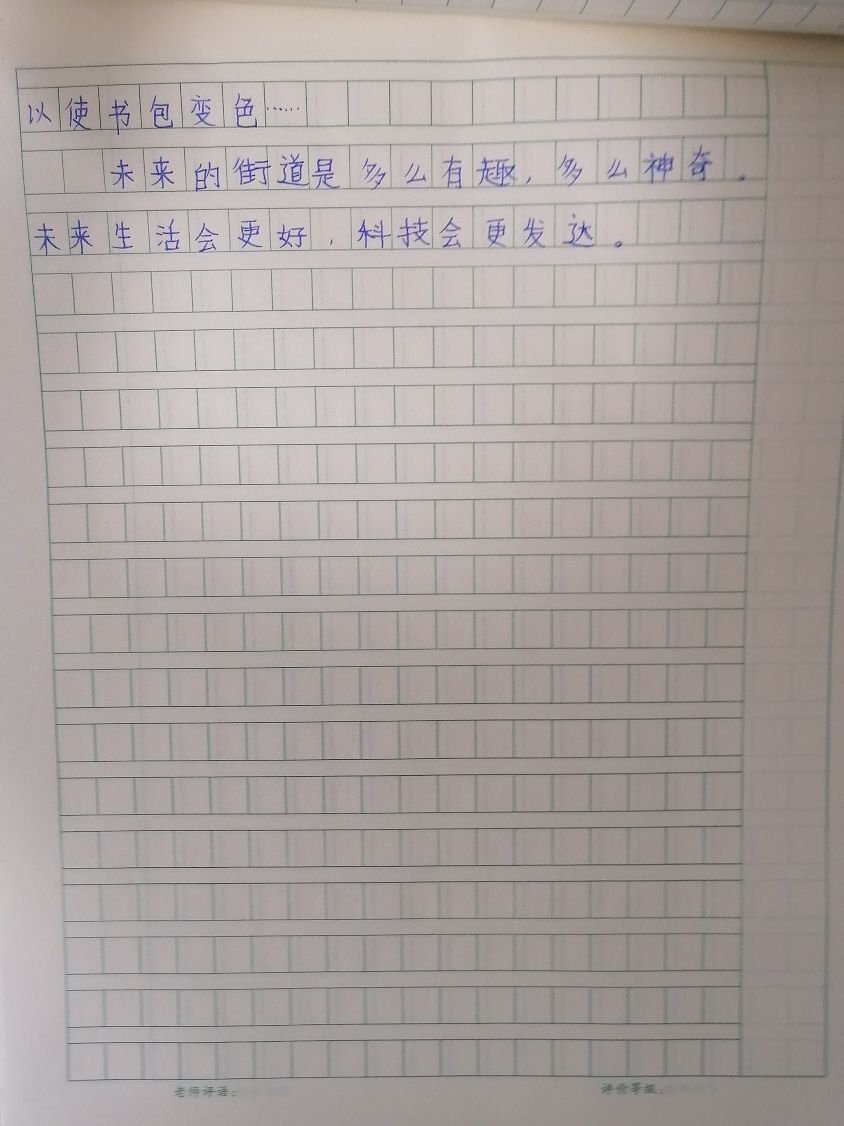 以使书包变色……
未来的街道是多么有趣，多么神奇。
未来生活会更好，科技会更发达。
老师评语：
评价等级：